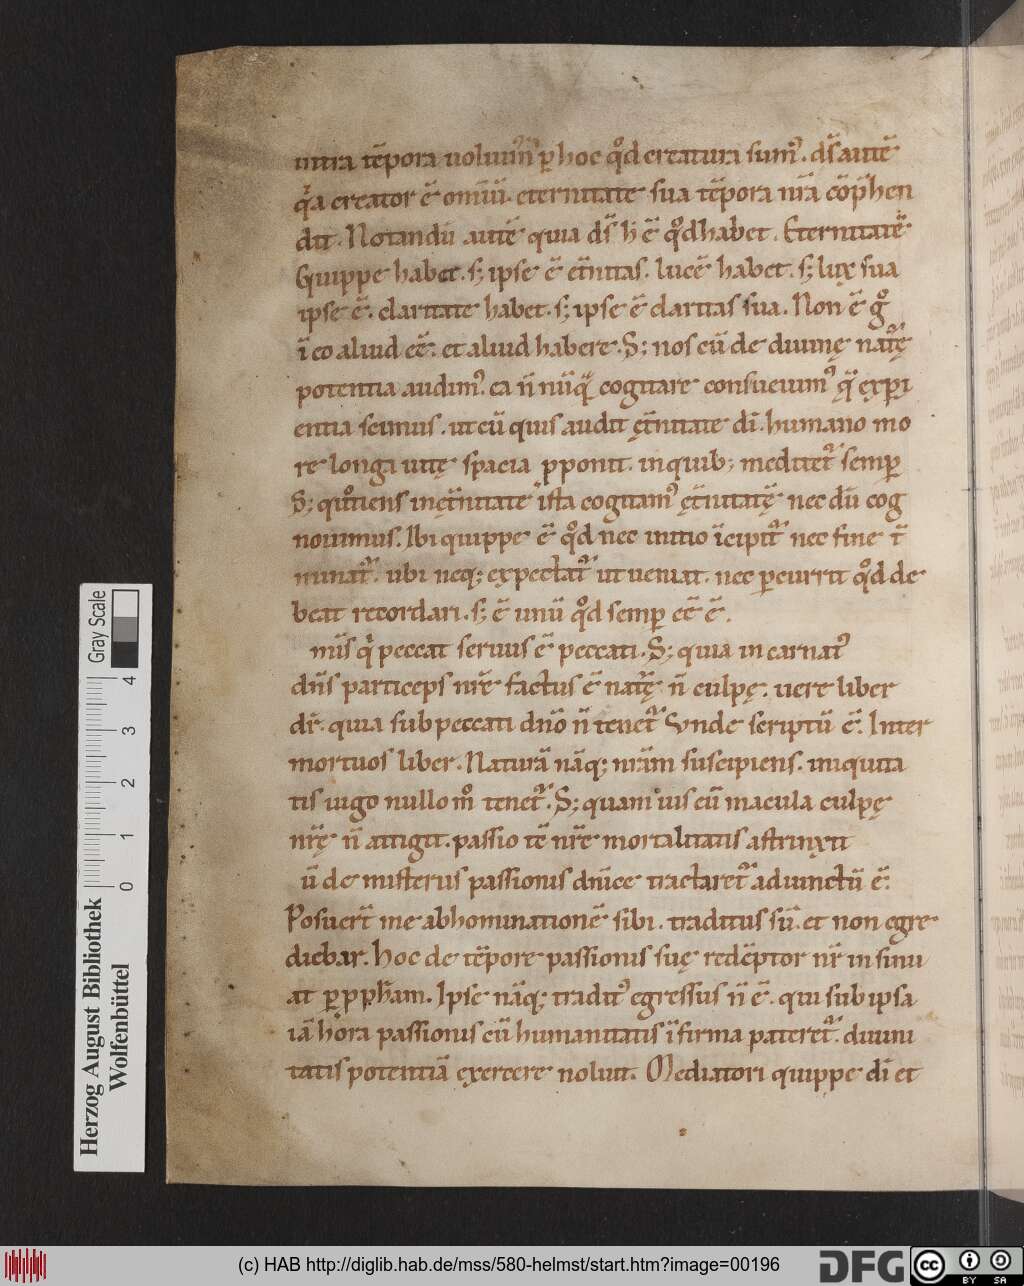 intra tēpora uoluim᷒ n̄ ꝑ hoc qͦd creatura sum᷒. ds̄ autē
qͥa creator ē omīū. eternitate sua tēpora nr̄a cōp̄hen
dit. Notandū autē quia ds̄ h̄ ē qͦd habet. Eternitatē
Quippe habet. s; ipse ē et̄nitas. lucē habet. s; lux sua
ipse ē. claritatē habet. s; ipse ē claritas sua. Non ē gͦ
ī eo aliud eē. et aliud habere. S; nos cū de diuinę nat᷒ę
potentia audim᷒. ea n̄ nūq᷒ cogitare consueuim᷒ q̄ exꝑi
entia scimus. ut cū quis audit ęt̄nitatē dī. humano mo
re longa uitę spacia ꝓponit. in quib; meditet᷒ semꝑ
S; quͦtiens in ęt̄nitate ista cogitam᷒ ęt̄nitatę̄ nec dū cog
nouimus. Ibi quippe ē qͦd nec initio īcipit᷒ nec fine t̄
minat᷒. ubi neq; expectat᷒ ut ueniat. nec ꝑcurrit qͦd de
beat recordari. s; ē unū qͦd semꝑ eē ē.
mīs qͥ peccat seruus ē peccati. S; quia incarnat᷒
dn̄s particeps nr̄ę factus ē nat᷒ę n̄ culpę. uere liber
dr̄. quia sub peccati dn̄o n̄ tenet᷒. Vnde scriptū ē. Inter
mortuos liber. Naturā nāq; nr̄am suscipiens. iniquita
tis iugo nullo mͦ tenet᷒. S; quamuis eū macula culpę
nr̄ę n̄ attigit. passio tē nr̄ę mortalitatis astrinxit
ū de misteriis passionis dn̄icę tractaret᷒ adiunctū ē.
Posuert̄ me abhominationē sibi. traditus sū. et non egre
diebar. Hoc de tēpore passionis suę redēptor nr̄ insinu
at ꝑ ꝓph̄am. Ipse nāq; tradit᷒ egressus n̄ ē. qui sub ipsa
iā hora passionis cū humanitatis īfirma pateret᷒. diuini
tatis potentiā exercere noluit. Mediatori quippe dī et
Herzog August Bibliothek
Wolfenbüttel
Gray Scale
0 1 2 3 4
(c) HAB http://diglib.hab.de/mss/580-helmst/start.htm?image=00196
DFG
cc BY SA